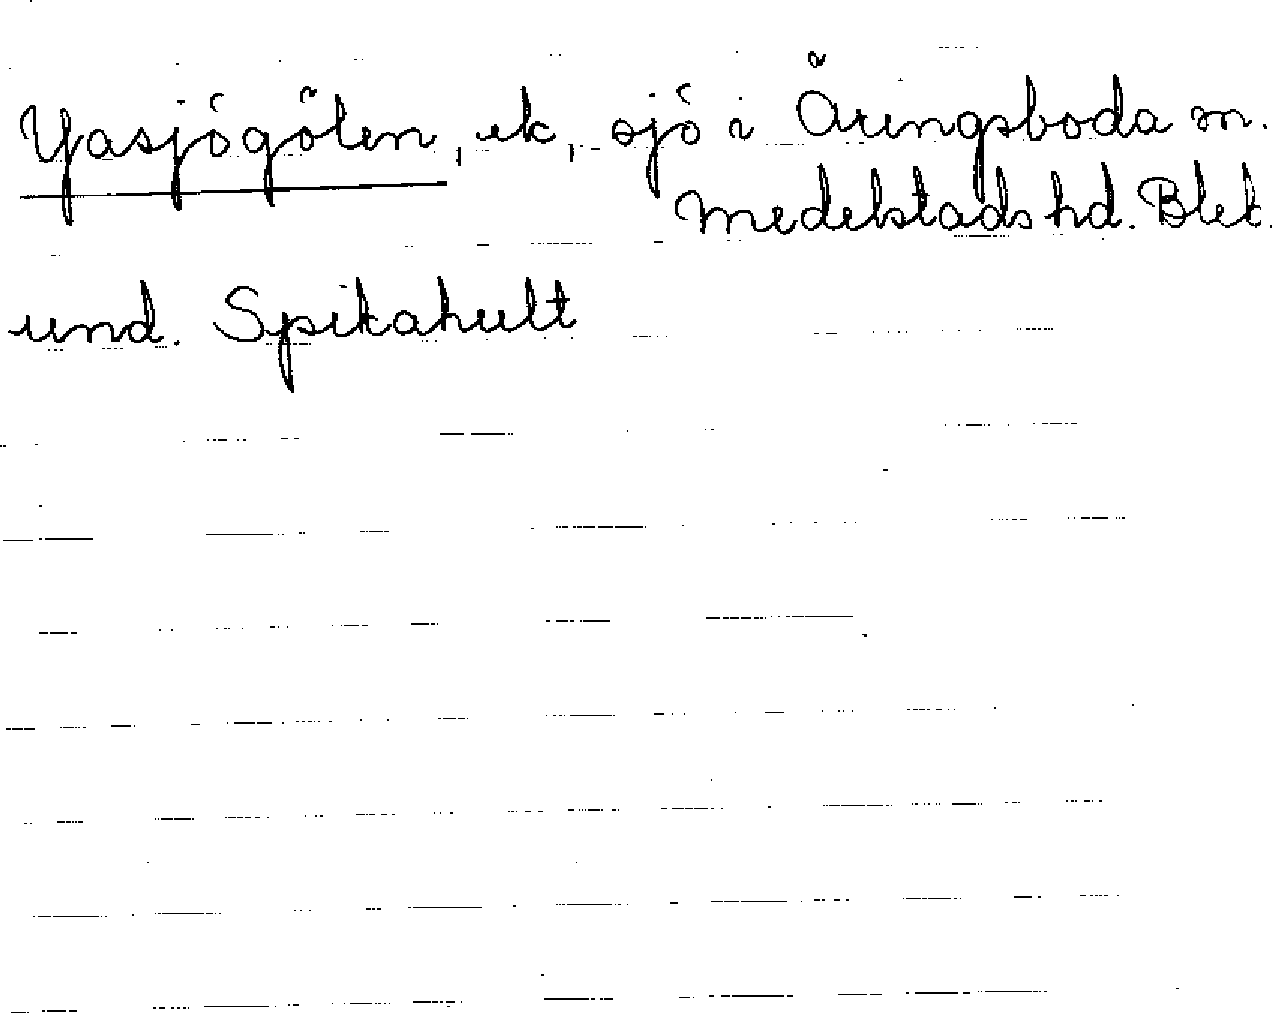 Yasjögölen, ek, sjö i Åringsboda sn.
Medelstads hd. Blek.
und. Spikahult